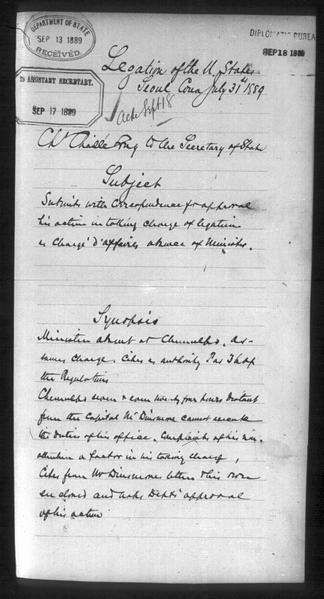 DEPARTMENT OF STATE
SEP 13 1889
RECEIVED
DIPLOMATIC BUREAU
SEP 18 1889
ASSISTANT SECRETARY.
SEP 17 1889
Legation of the U. States
Seoul, Corea July 31st 1889
Ackd Sept 18
Ch. Chaillé Long to the Secretary of State
Subject
Submits with correspondence for approval
his action in taking charge of legation
as Chargé d'affaires absence of Minister.
Synopsis
Minister absent at Chemulpo. As-
sumes charge. Cites as authority Par
the Regulations
Chemulpo seven & even twenty four hours distant
from the Capital Mr Dinsmore cannot execute
the duties of his office. Complaints of his non-
attendance a factor in his taking charge,
Cites from Mr Dinsmores letters & his own
enclosed and asks Depts approval
of his action